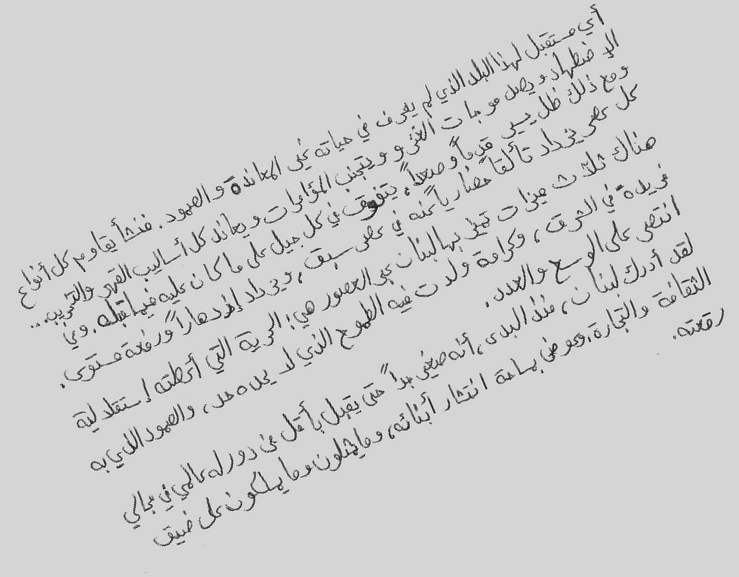 أي مستقبل لهذا البلد الذي لم يعرف في حياته غير المعاندة والصمود. فنشأ يقاوم كل أنواع
الإضطهاد ويصد موجات الغزو ويتجنب المؤامرات ويعاند كل أساليب القهر والتخريب...
ومع ذلك ظل يسير قدماً وصعداً. يتفوق في كل جيل على ما كان عليه فيما قبله. وفي
كل عصر يزداد تألقاً حضارياً عنه في عصر سبق، ويزداد إزدهاراً ورفعة مستوى.
هناك ثلاث ميزات تميز بها لبنان عبر العصور هي: الحرية التي أعطته إستقلالية
فريدة في الشرق، وكرامة ولدت فيه الطموح الذي لا يحده حد، والصمود الذي به
انتصر على الوسع والعدد.
لقد أدرك لبنان، منذ البدء، أنه صغير جداً حتى يقبل بأقل من دور له عالمي في مجالي
الثقافة والتجارة. وعوض بساحة انتشار أبنائه، وما يمثلون وما يملكون على ضيق
رقعته.